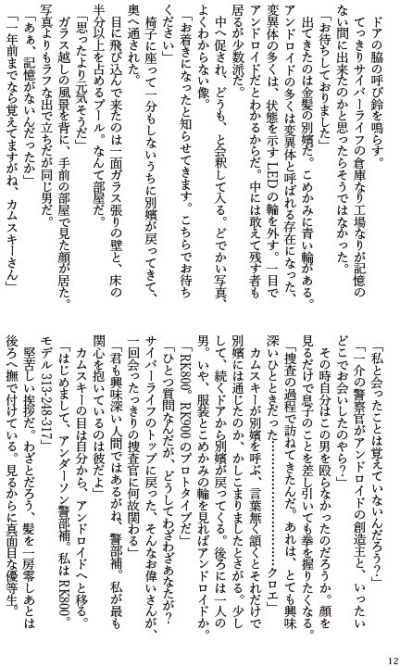 ドアの脇の呼び鈴を鳴らす。
てっきりサイバーライフの倉庫なり工場なりが記憶の
ない間に出来たのかと思ったらそうではなかった。
「お待ちしておりました」
出てきたのは金髪の別嬪だ。こめかみに青い輪がある。
アンドロイドの多くは変異体と呼ばれる存在になった、
変異体の多くは、状態を示すLEDの輪を外す。一目で
アンドロイドだとわかるからだ。中には敢えて残す者も
居るが少数派だ。
中へ促され、どうも、と会釈して入る。どでかい写真、
よくわからない像。
「お着きになったと知らせてきます。こちらでお待ち
ください」
椅子に座って一分もしないうちに別嬪が戻ってきて、
奥へ通された。
目に飛び込んで来たのは一面ガラス張りの壁と、床の
半分以上を占めるプール。なんて部屋だ。
「思ったより元気そうだ」
ガラス越しの風景を背に、手前の部屋で見た顔が居た。
写真よりもラフな出で立ちだが同じ男だ。
「あぁ、記憶がないんだったか」
「二年前までなら覚えてますがね、カムスキーさん」
「私と会ったことは覚えていないんだろう？」
「一介の警察官がアンドロイドの創造主と、いったい
どこでお会いしたのやら？」
その時自分はこの男を殴らなかったのだろうか。顔を
見るだけで息子のことを差し引いても拳を握りたくなる。
「捜査の過程で訪ねてきたんだ。あれは、とても興味
深いひとときだった……………………クロエ」
カムスキーが別嬪を呼ぶ、言葉無く頷くとそれだけで
別嬪には通じたのか、かしこまりましたとさがる。少し
して、続くドアから別嬪が戻ってくる。後ろには一人の
男。いや、服装とこめかみの輪を見ればアンドロイドか。
「RK800。RK900のプロトタイプだ」
「ひとつ質問なんだが、どうしてわざわざあなたが？
サイバーライフのトップに戻った、そんなお偉いさんが、
一回会ったっきりの捜査官に何故関わる」
「君も興味深い人間ではあるがね、警部補。私が最も
関心を抱いているのは彼だよ」
カムスキーの目は自分から、アンドロイドへと移る。
「はじめまして、アンダーソン警部補。私はRK800。
モデル313-248-317」
堅苦しい挨拶だ。わざとだろう、髪を一房零しあとは
後ろへ撫で付けている。見るからに真面目な優等生。
12